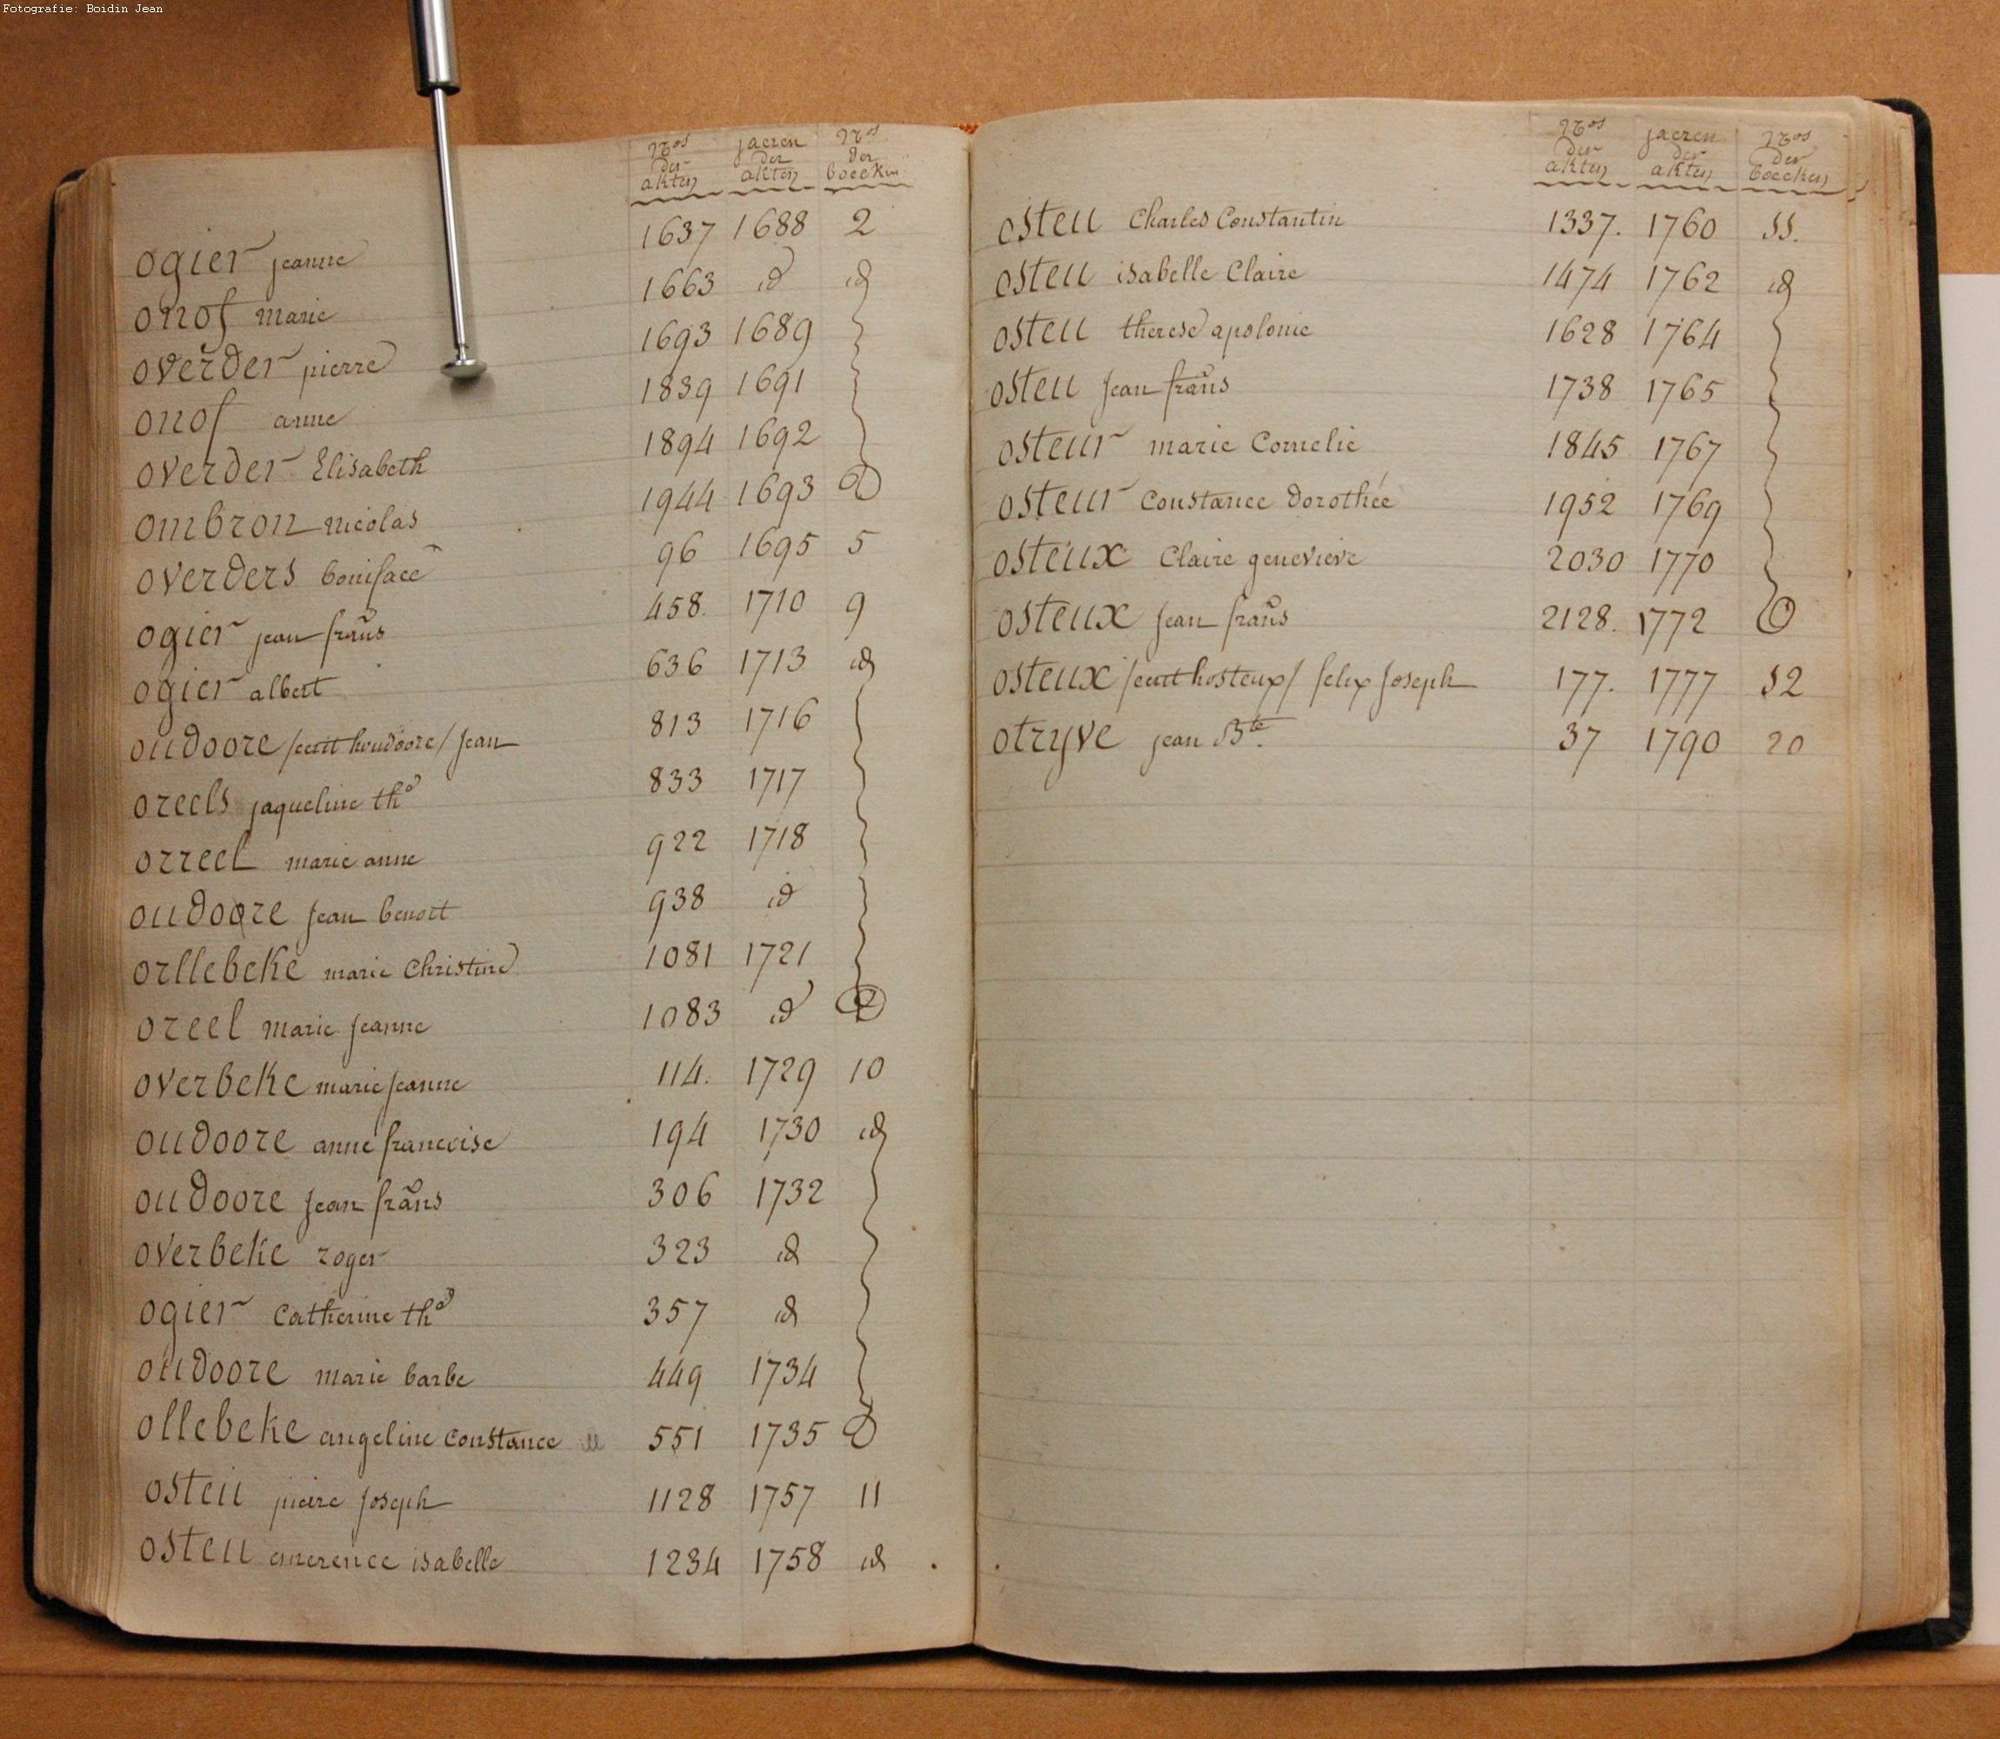 Fotografie: Boidin Jean
Nros der akten jaeren der akten Nros der boecken
ogier jeanne 1637 1688 2
onof marie 1663 id id
overder pierre 1693 1689
onof anne 1839 1691
overder Elisabeth 1894 1692
ombron nicolas 1944 1693
overders boniface 96 1695 5
ogier jean frans 458. 1710 9
ogier albert 636 1713 id
oudoore /ecrit houdoore/ jean 813 1716
oreels jaqueline the 833 1717
orreel marie anne 922 1718
oudoore jean benoit 938 id
orllebeke marie Christine 1081 1721
oreel marie jeanne 1083 id
overbeke marie jeanne 114. 1729 10
oudoore anne francoise 194 1730 id
oudoore jean frans 306 1732
overbeke roger 323 id
ogier Catherine the 357 id
oudoore marie barbe 449 1734
ollebeke angeline Constance 551 1735
osteu pierre joseph 1128 1757 11
osteu emerence isabelle 1234 1758 id
Nros der akten jaeren der akten Nros der boecken
osteu Charles Constantin 1337. 1760 11.
osteu isabelle Claire 1474 1762 id
osteu therese apolonie 1628 1764
osteu jean frans 1738 1765
osteur marie Cornelie 1845 1767
osteur Constance Dorothée 1952 1769
osteux Claire genevieve 2030 1770
osteux jean frans 2128. 1772
osteux /ecrit hosteux/ felix joseph 177. 1777 12
otryve jean Bte. 37 1790 20